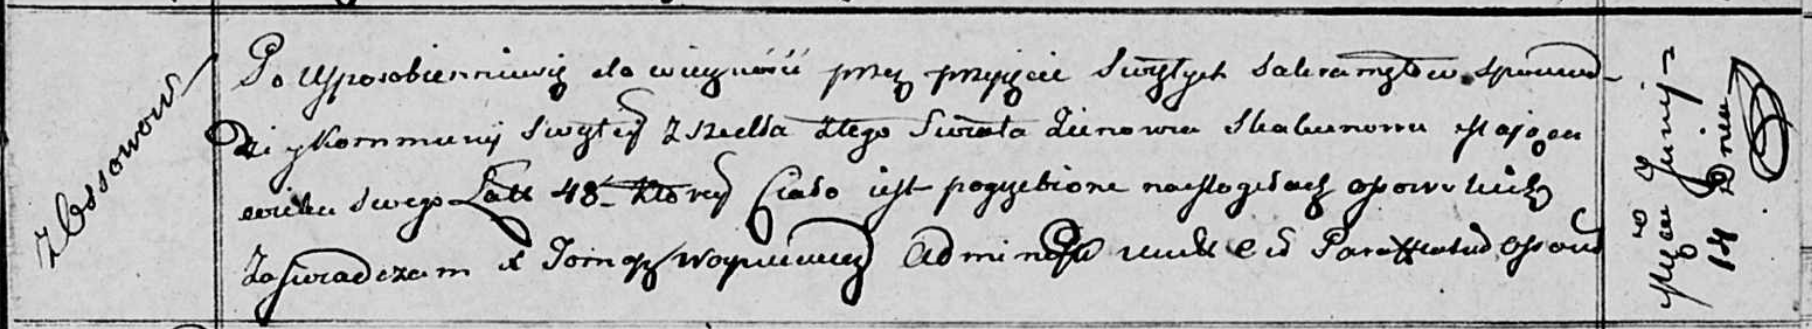 z Ossowow
Po Usposobienniuwię do wiecznosci przez przyięcie Swiętych Sakramętow spowied-
zi y Kommunij Swiętey zszedła ztego Swiata Zienowia Skakunowa maiąca
wieku swego Latt 48 - Ktorey Ciało iest pogrzebione na Mogiłach osowskich
Zaświadczam X Tomasz Woyniewicz Administr
Mca Junij
14 Dnia